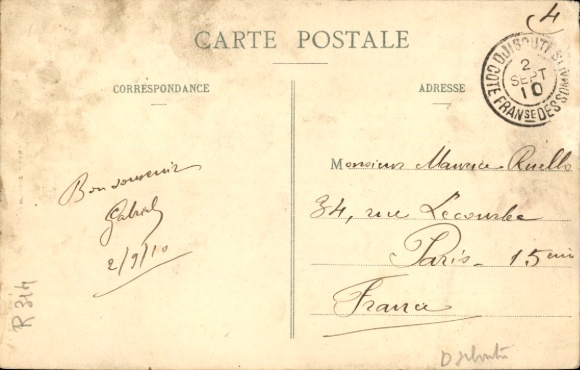 4
CARTE POSTALE
DJIBOUTI
2
SEPT
10
COTE FRANSE DES SOMALIS
CORRESPONDANCE
ADRESSE
Bon souvenir
Gabriel
2/9/10
Monsieur Maurice Ruello
34, rue Lecourbe
Paris - 15 eme
France
R 314
Djibouti